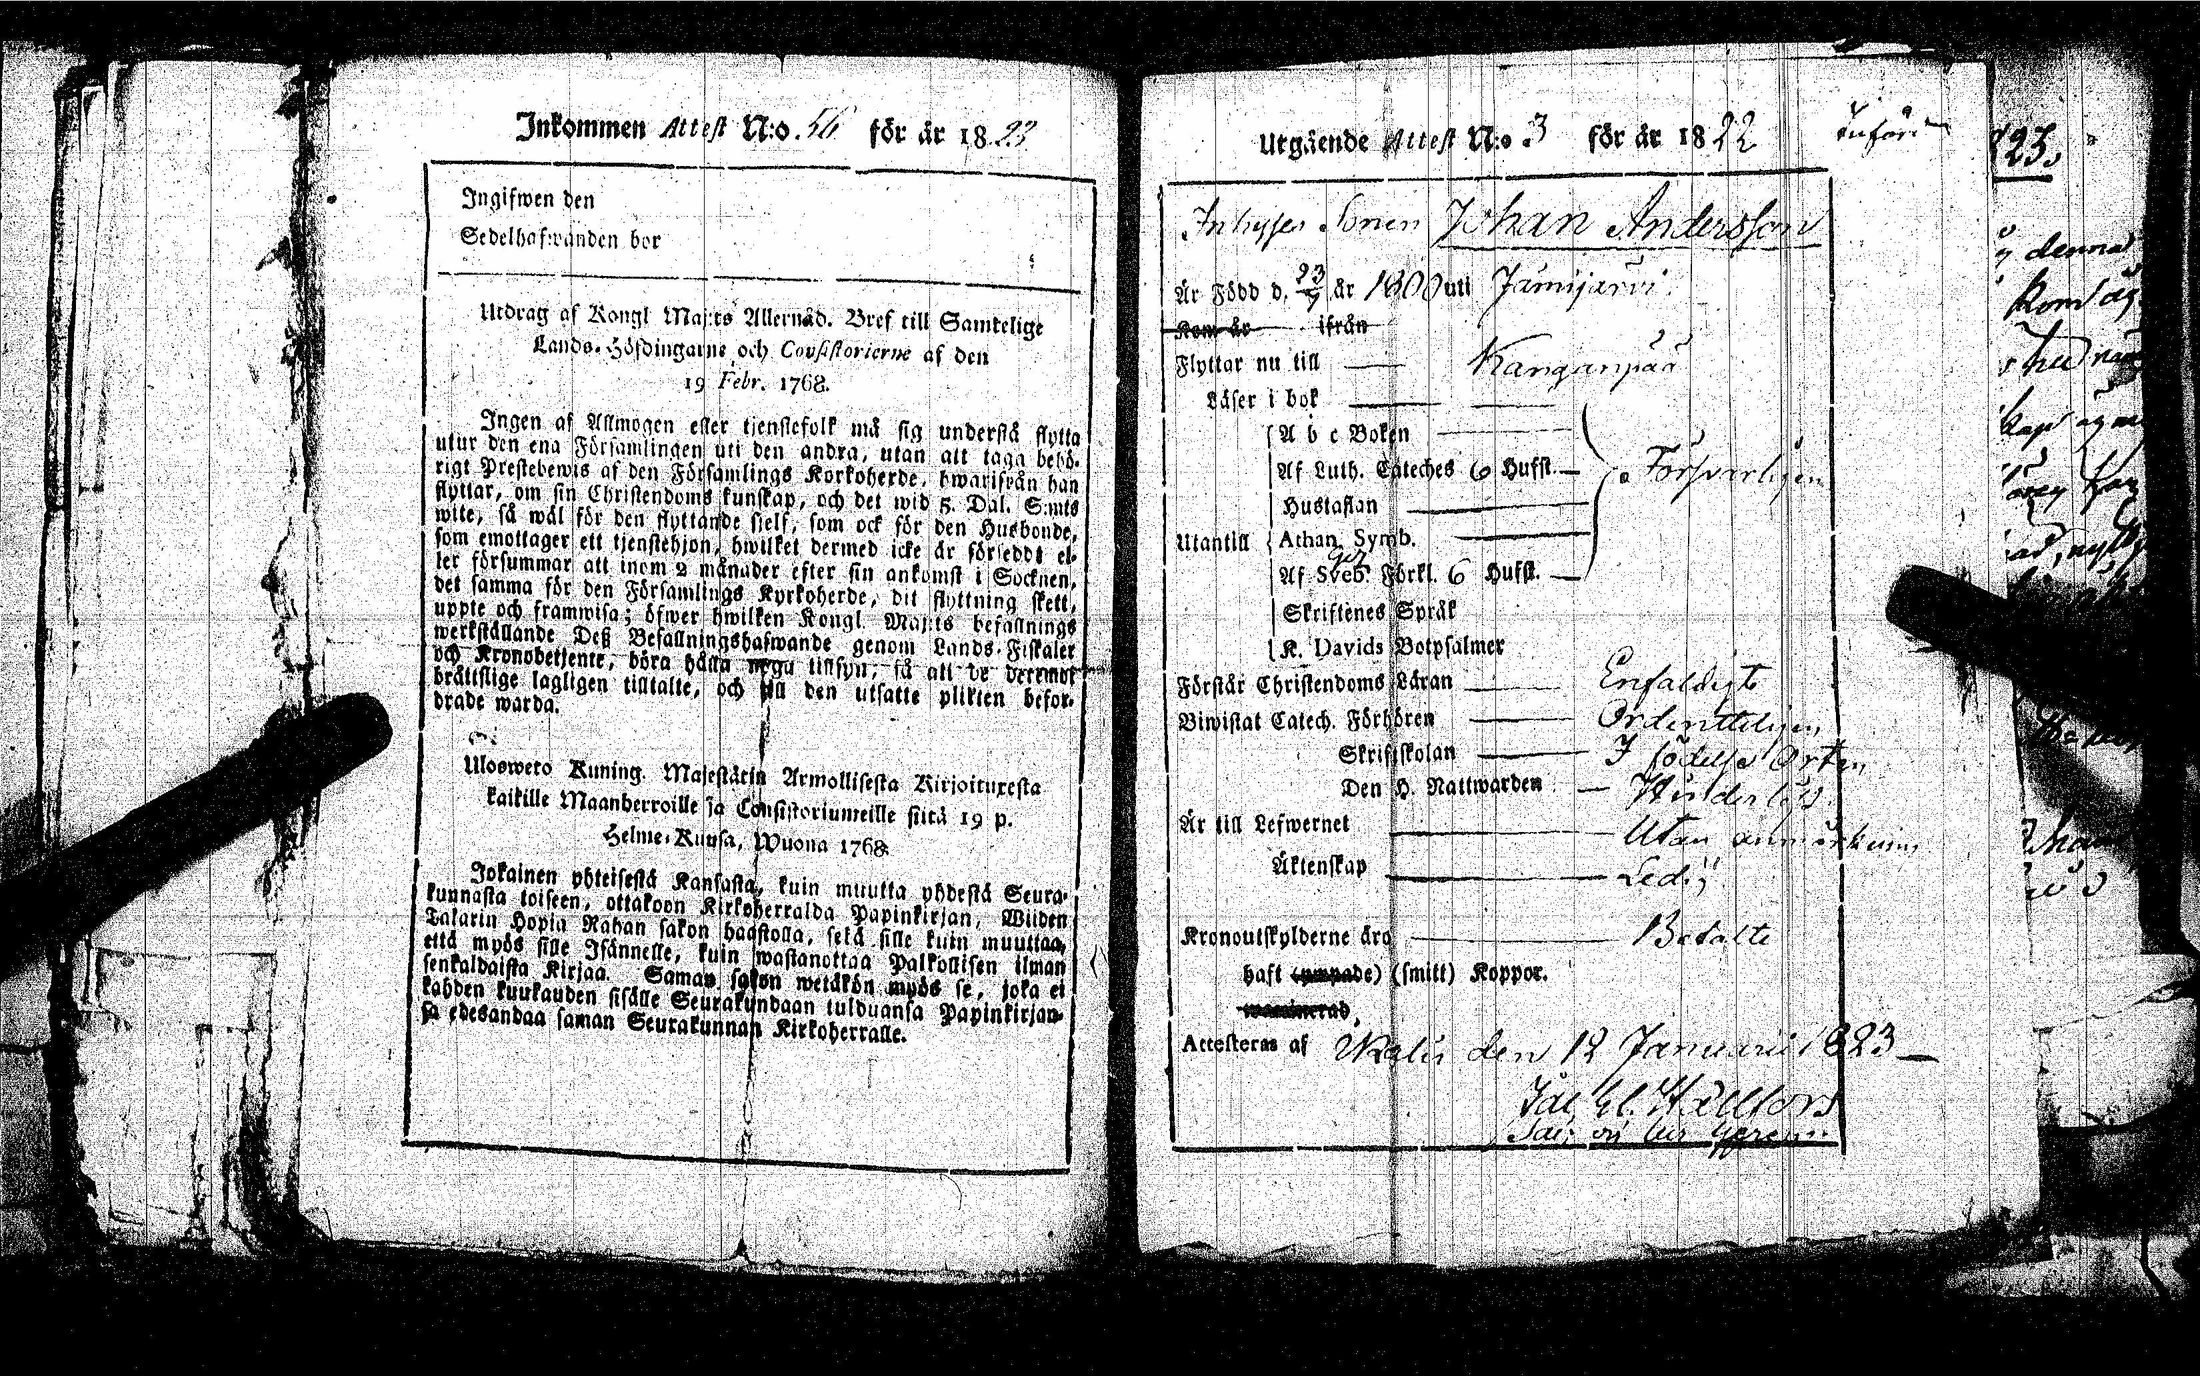 Inkommen Attest N:o 56 för år 1823
Ingifwen den
Sedelhafwanden bor
Utdrag af Kongl Maj:ts Allernåd. Bref till Samtelige
Lands-Höfdingarne och Consistorierne af den
19 Febr. 1768.
Ingen af Allmogen eller tjenstefolk må sig understå flytta
utur den ena Församlingen uti den andra, utan att taga behö-
rigt Prestebewis af den Församlings Kyrkoherde, hwarifrån han
flyttar, om sin Christendoms kunskap, och det wid 5. Dal. S:mts
wite, så wäl för den flyttande sielf, som ock för den Husbonde,
som emottager ett tjenstehjon, hwilket dermed icke är försedt el-
ler försummar att inom 2 månader efter sin ankomst i Socknen,
det samma för den Församlings Kyrkoherde, dit flyttning skett,
uppte och framwisa; öfwer hwilken Kongl. Maj:ts befallnings
werkställande Deß Befallningshafwande genom Lands-Fiskaler
och Kronobetjente, böra hålla noga tillsyn, så att de deremot
bråttslige lagligen tilltalte, och till den utsatte plikten befor-
drade warda.
Ulosweto Kuning. Majestätin Armollisesta Kirjoituxesta
kaikille Maanherroille ja Consistoriumeille siitä 19 p.
Helme-Kuusa, Wuona 1768.
Jokainen yhteisestä Kansasta, kuin muutta yhdestä Seura-
kunnasta toiseen, ottakoon Kirkoherralda Papinkirjan, Wiiden
Talarin Hopia Rahan sakon haastolla, sekä sille kuin muuttaa,
että myös sille Isännelle, kuin wastanottaa Palkollisen ilman
senkaldaista Kirjaa. Saman sakon wetäkön myös se, joka ei
kahden kuukauden sisälle Seurakundaan tulduansa Papinkirjan-
sa edesandaa saman Seurakunnan Kirkoherralle.
Utgående Attest N:o 3 för år 1822
Inhyses Sonen Johan Andersson
Är Född d. 23/7 år 1800 uti Jämijärvi
Kom år ifrån
Flyttar nu till Kanganpää
Läser i bok
A b c Boken
Af Luth. Cateches 6 Hufst.
Försvarligen
Hustaflan
Utantill Athan. Symb.
Af Sveb. Förkl. 6 Hufst.
Skriftenes Språk
K. Davids Botpsalmer
Förstår Christendoms Läran Enfaldigt
Biwistat Catech. Förhören Ordentteligen
Skriftskolan I födelse Orten
Den H. Nattwarden
Är till Lefwernet Utan anmärkning
Äktenskap Ledig
Kronoutskylderne äro Betalte
haft (ympade) (smitt) Koppor.
Attesteras af den 12 Januarii 1823